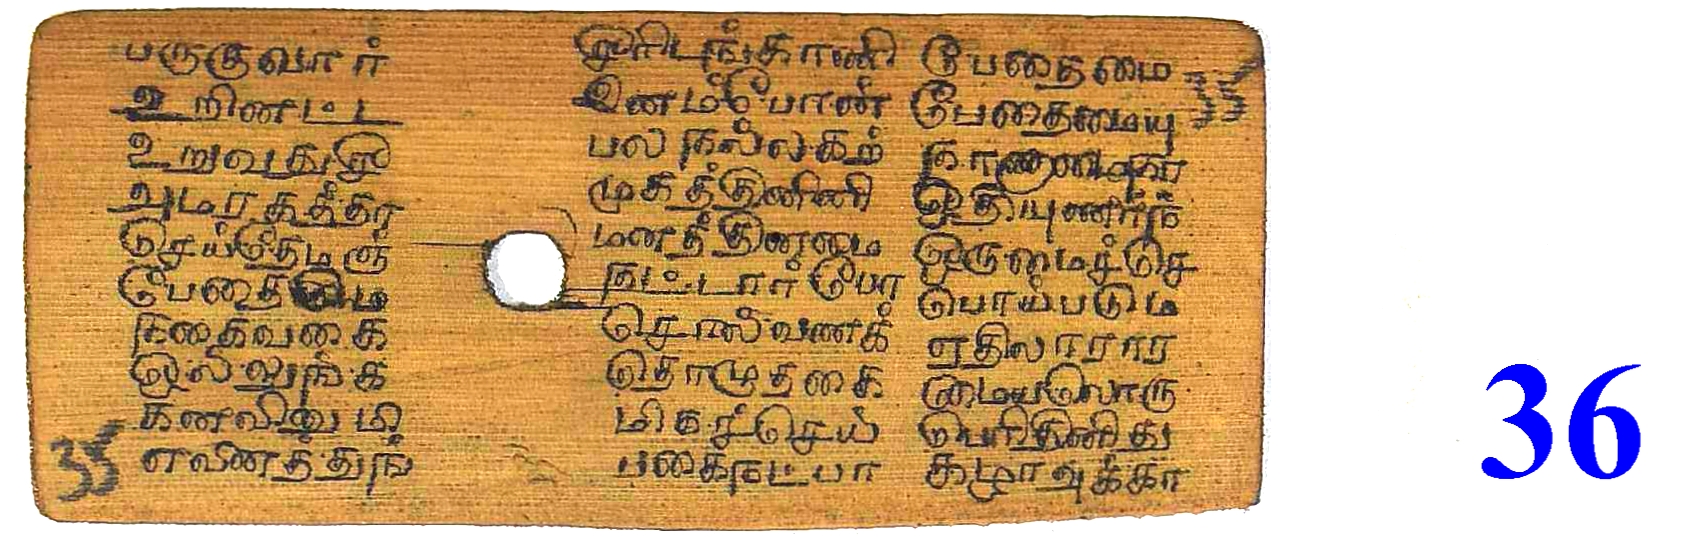 பருகுவார்
உறினட்ட
உறுவதுசீ
அமரகத்தா
செய்தேமஞ்
பேதை
நகைவகை
ஒல்லுங்க
கனவினுமி
எனைத்துங்
35
சீரிடங்காணி
இனம்போன்
பலநல்லகற்
முகத்தினினி
மனத்தினமை
நட்டார்போ
சொல்வணக்
தொழுதகை
மிகச்செய்
பகைநட்பா
பேதைமை
பேதைமையு
நாணாமைநா
ஓதியுணர்ந்
ஒருமைச்செ
பொய்படும
ஏதிலாரார
மையலொரு
பெரிதினிது
கழாஅக்கா
35
36